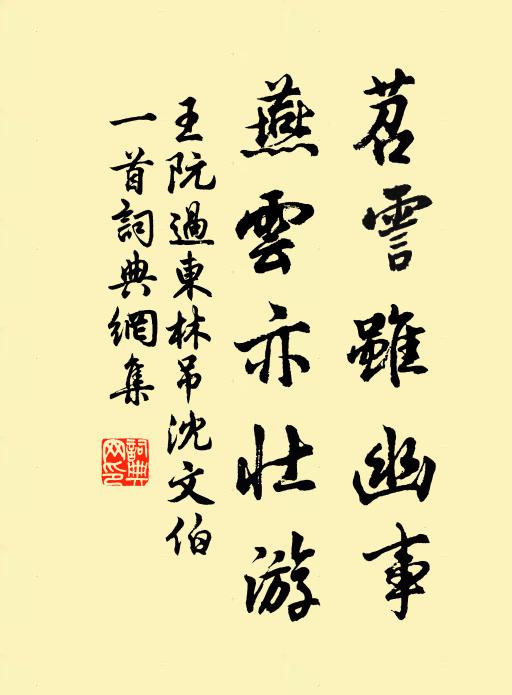 苕霅雖幽事
燕雲亦壯游
王阮過東林吊沈文伯
一首詞典網集
詞典网印